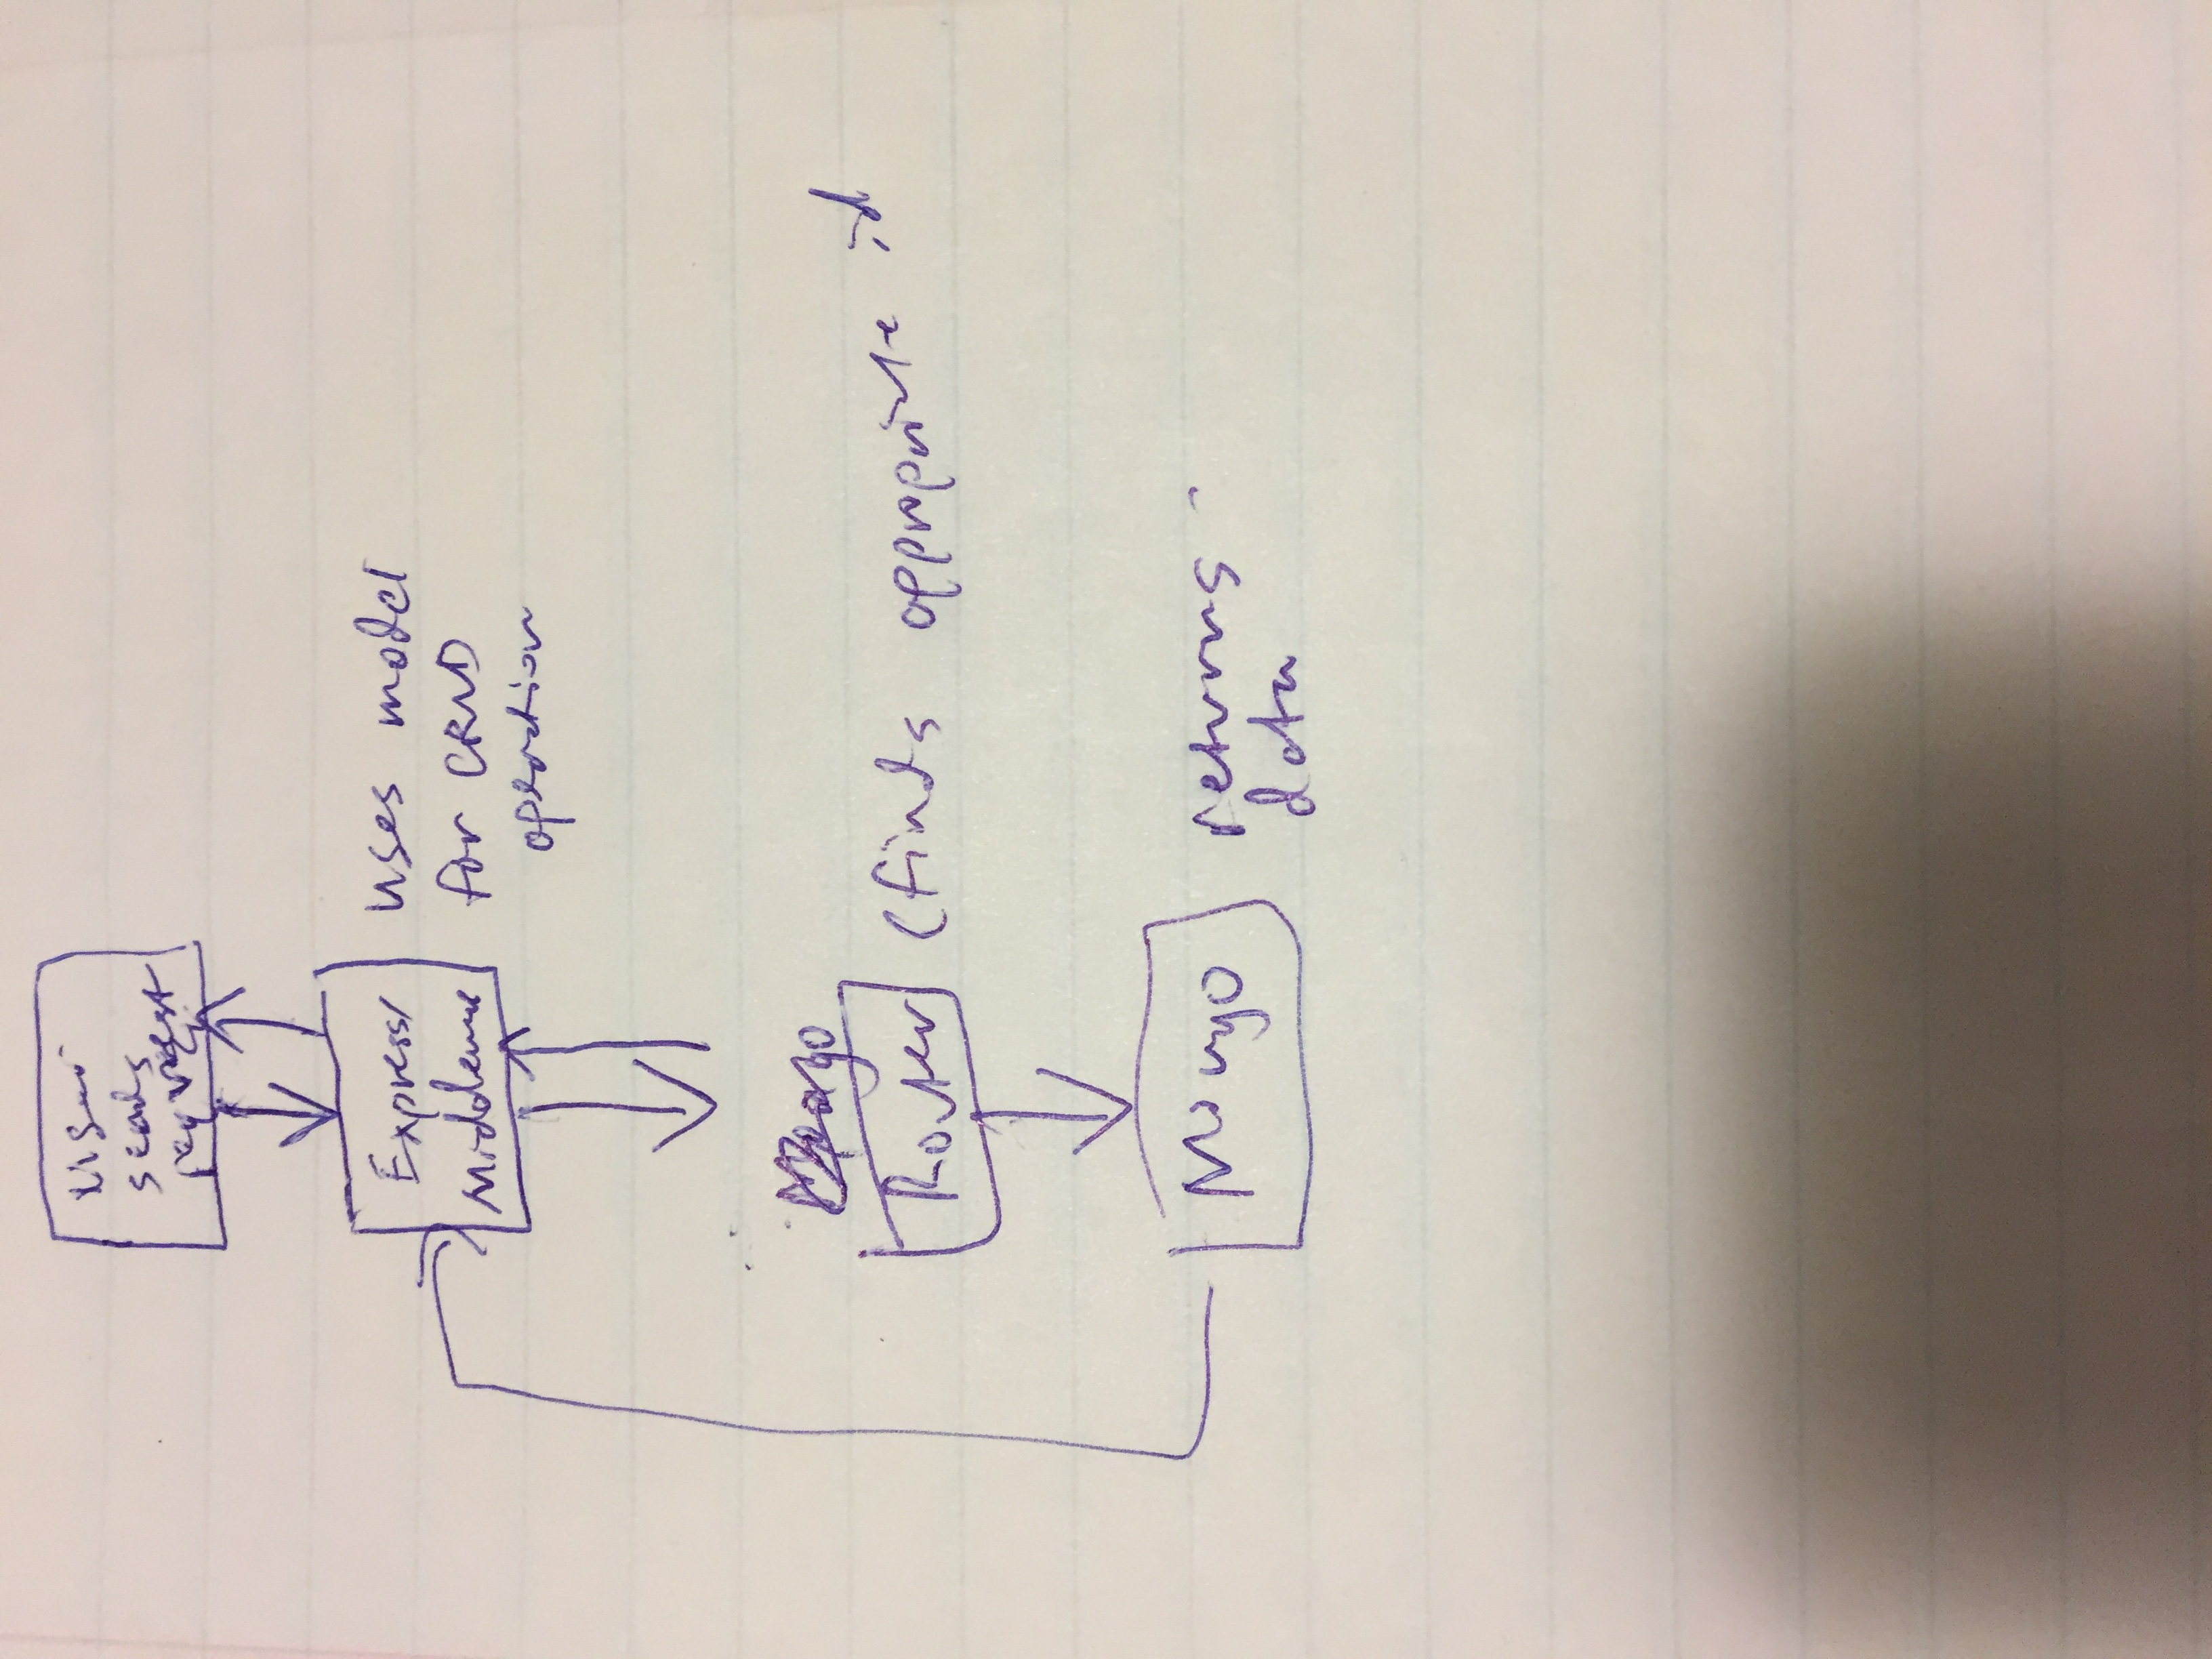 User
sends
request
Express/
Middleware
uses model
for CRUD
operation
Mongo
Router
(finds appropriate id
Mongo
returns
data